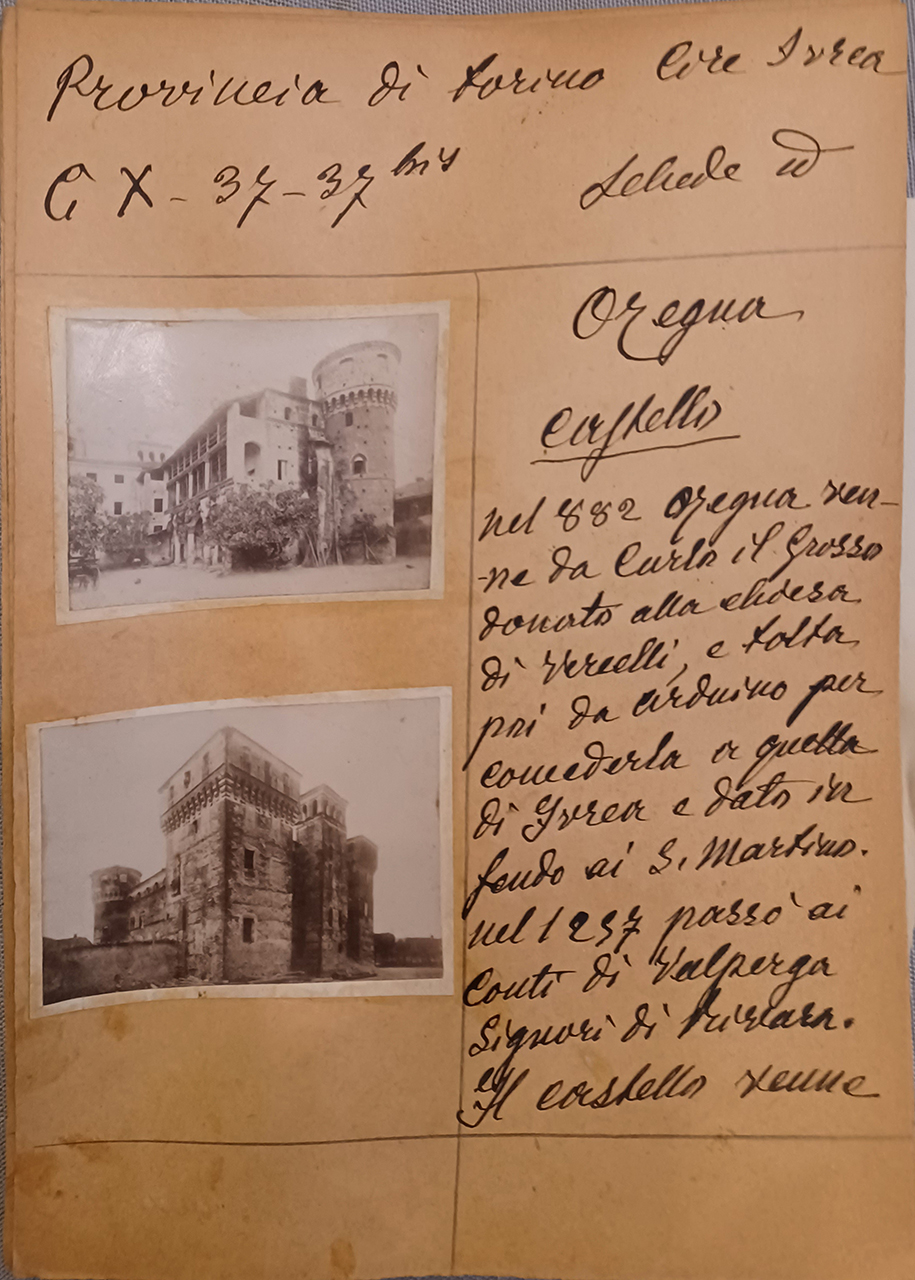 Provincia di Torino Circ Ivrea
C X - 37 - 37 bis
Schede
Ozegna
Castello
nel 882 Ozegna ven-
-ne da Carlo il Grosso
donato alla chiesa
di Vercelli, e tolta
poi da Arduino per
concederla a quella
di Ivrea e dato in
feudo ai S. Martino.
nel 1257 passò ai
Conti di Valperga
Signori di Rivara.
Il castello venne